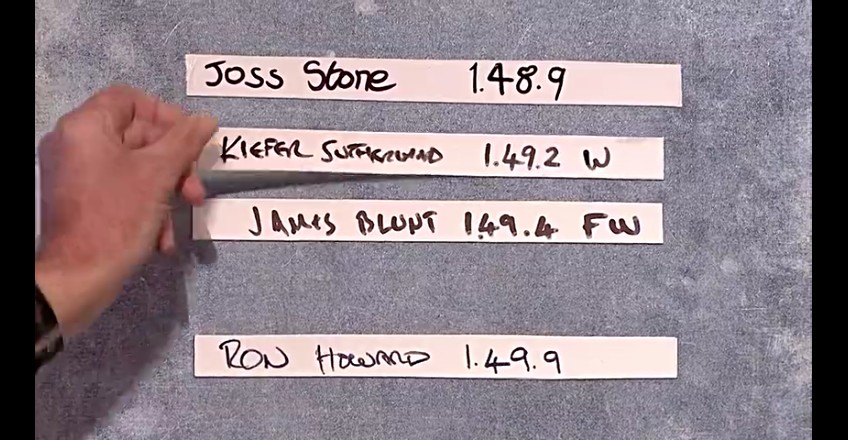 Joss Stone 1.48.9
KIEFER SUTHERLAND 1.49.2 W
JAMES BLUNT 1.49.4 FW
RON HOWARD 1.49.9